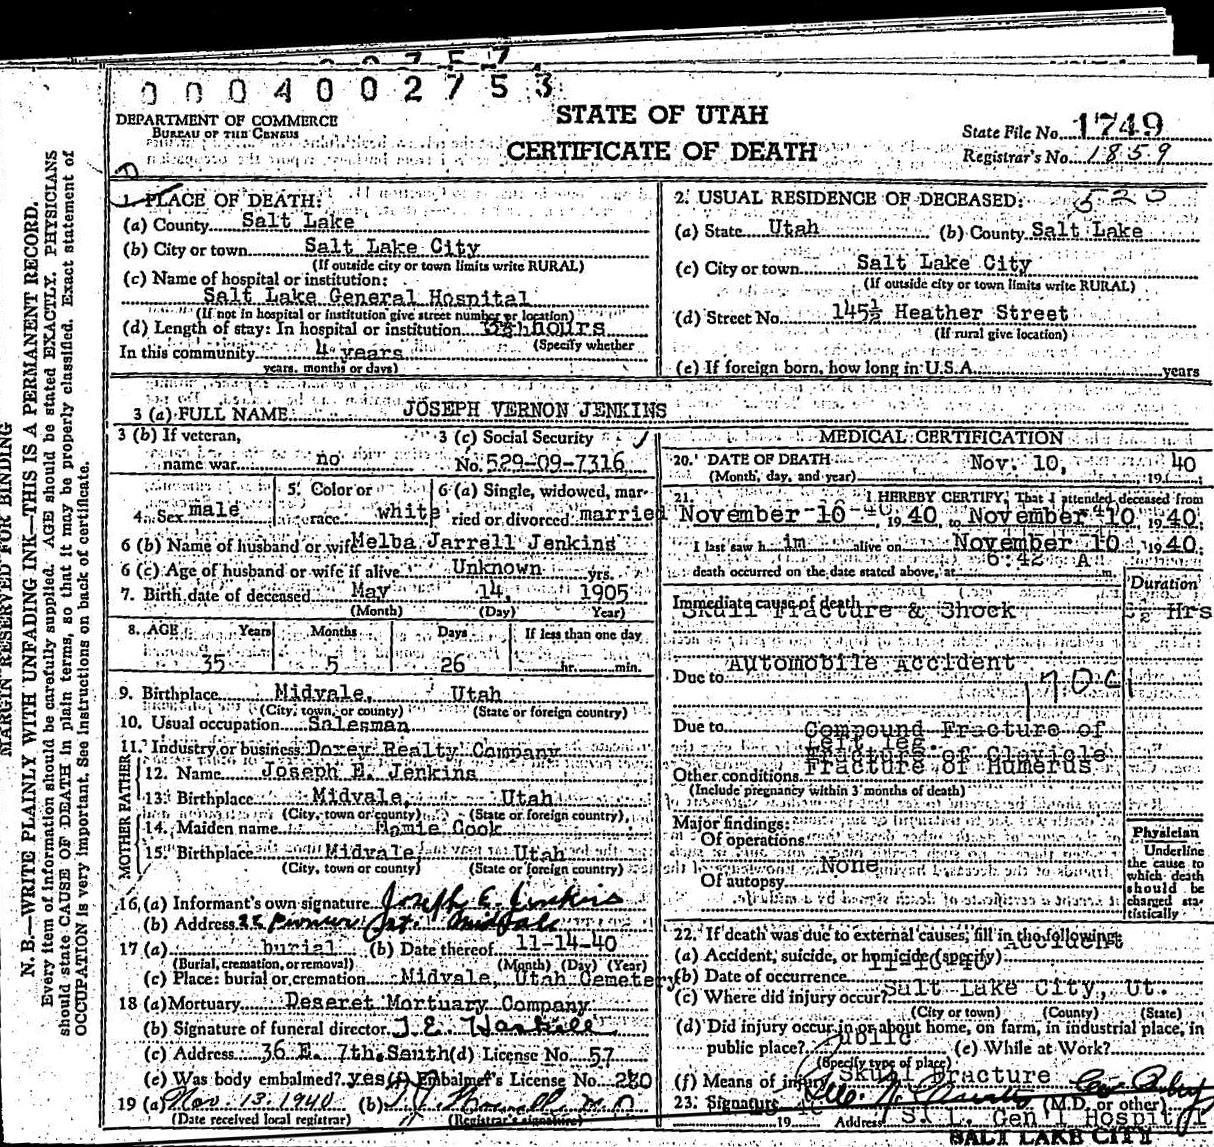 0004002753
STATE OF UTAH
CERTIFICATE OF DEATH
DEPARTMENT OF COMMERCE
BUREAU OF THE CENSUS
State File No. 1749
Registrar's No. 1859
MARGIN RESERVED FOR BINDING
N. B.—WRITE PLAINLY WITH UNFADING INK—THIS IS A PERMANENT RECORD.
Every item of information should be carefully supplied. AGE should be stated EXACTLY. PHYSICIANS
should state CAUSE OF DEATH in plain terms, so that it may be properly classified. Exact statement of
OCCUPATION is very important. See instructions on back of certificate.
1. PLACE OF DEATH:
(a) County Salt Lake
(b) City or town Salt Lake City
(If outside city or town limits write RURAL)
(c) Name of hospital or institution:
Salt Lake General Hospital
(If not in hospital or institution give street number or location)
(d) Length of stay: In hospital or institution hours
(Specify whether
In this community 4 years
years, months or days)
2. USUAL RESIDENCE OF DECEASED:
(a) State Utah (b) County Salt Lake
(c) City or town Salt Lake City
(If outside city or town limits write RURAL)
(d) Street No. 145½ Heather Street
(If rural give location)
(e) If foreign born, how long in U.S.A. years
3 (a) FULL NAME JOSEPH VERNON JENKINS
3 (b) If veteran, name war no
3 (c) Social Security No. 529-09-7316
4. Sex male
5. Color or race white
6 (a) Single, widowed, married or divorced married
6 (b) Name of husband or wife Melba Jarrell Jenkins
6 (c) Age of husband or wife if alive Unknown yrs.
7. Birth date of deceased May 14, 1905
(Month) (Day) Year)
8. AGE Years Months Days If less than one day
35 5 26 hr. min.
9. Birthplace Midvale, Utah
(City, town, or county) (State or foreign country)
10. Usual occupation Salesman
11. Industry or business Doxey Realty Company
FATHER
12. Name Joseph E. Jenkins
13. Birthplace Midvale, Utah
(City, town or county) (State or foreign country)
MOTHER
14. Maiden name Mamie Cook
15. Birthplace Midvale, Utah
(City, town or county) (State or foreign country)
16. (a) Informant's own signature Joseph E. Jenkins
(b) Address Pioneer St. Midvale
17 (a) burial (b) Date thereof 11-14-40
(Burial, cremation, or removal) (Month) (Day) (Year)
(c) Place: burial or cremation Midvale, Utah Cemetery
18 (a) Mortuary Deseret Mortuary Company
(b) Signature of funeral director
(c) Address 36 E. 7th South (d) License No. 57
(e) Was body embalmed? yes (f) Embalmer's License No. 280
19 (a) Nov. 13. 1940 (b)
(Date received local registrar) (Registrar's signature)
MEDICAL CERTIFICATION
20. DATE OF DEATH Nov. 10, 1940
(Month, day, and year)
21. I HEREBY CERTIFY, That I attended deceased from
November 10 1940 to November 10, 1940.
I last saw him alive on November 10, 1940.
death occurred on the date stated above, at 6:42 A m.
Duration
Immediate cause of death
Skull Fracture & Shock Hrs
Due to Automobile Accident
170C
Due to Compound Fracture of
left leg.
Fracture of Clavicle
Other conditions Fracture of Humerus
(Include pregnancy within 3 months of death)
Major findings:
Of operations
Of autopsy None
Physician
Underline
the cause to
which death
should be
charged sta-
tistically
22. If death was due to external causes, fill in the following:
(a) Accident, suicide, or homicide (specify) Accident
(b) Date of occurrence 11-10-40
(c) Where did injury occur? Salt Lake City, Ut.
(City or town) (County) (State)
(d) Did injury occur in or about home, on farm, in industrial place, in
public place? Public (e) While at Work?
(Specify type of place)
(f) Means of injury Skull Fracture
23. Signature (M.D. or other)
19 Address S. L. Gen'l Hospital
SALT LAKE CITY